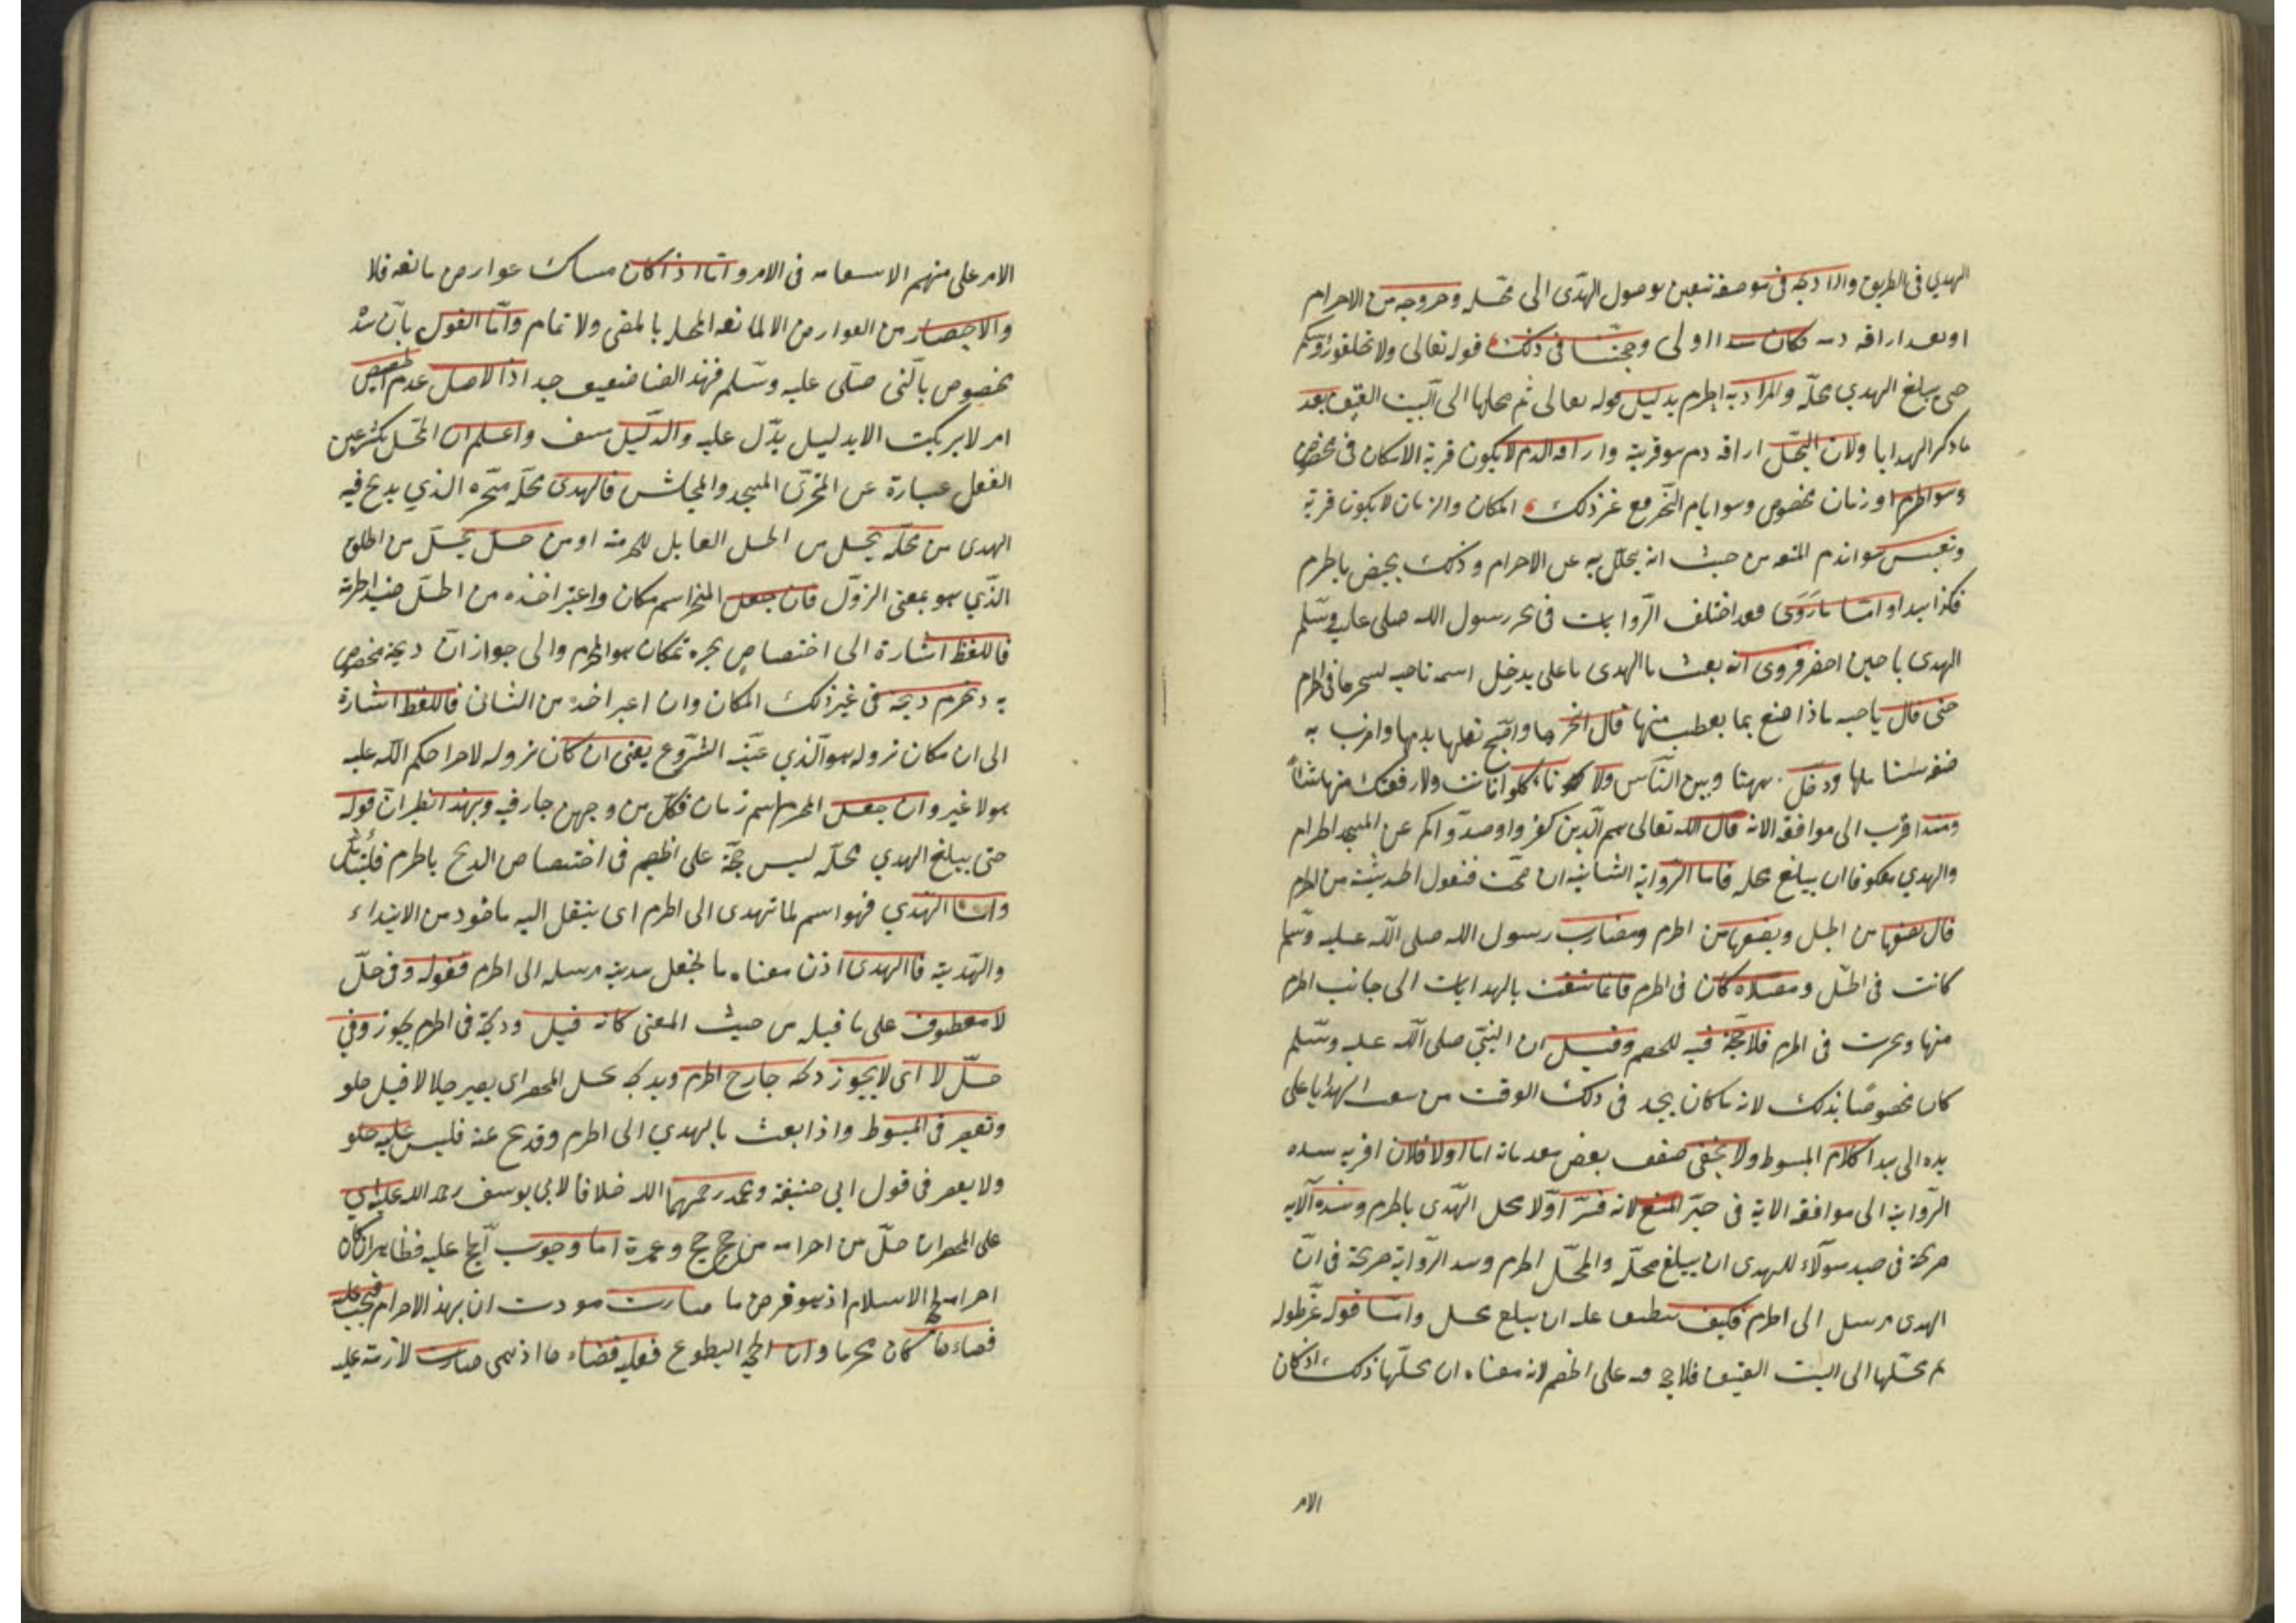 الهدي في الطريق واراد به في موضعه تيقن بوصول الهدى الى محله وخروجه من الاحرام
او بعد اراقة دمه فكان هذا اولى وحجتنا في ذلك قوله تعالى ولا تحلقوا رؤسكم
حتى يبلغ الهدي محله والمراد به الحرم بدليل قوله تعالى ثم محلها الى البيت العتيق بعد
ما ذكر الهدايا ولان التحلل اراقة دم هو قربة واراقة الدم لا يكون قربة الا كان في مخصوص
وهو الحرم او زمان مخصوص وهو ايام النحر مع غير ذلك المكان والزمان لا يكون قربة
من حيث انه يحلل به عن الاحرام وذلك يختص بالحرم
فكذا هذا واما ما روى فقد اختلف الروايات في نحر رسول الله صلى عليه وسلم
الهدى يا حين احصر فروى انه بعث بالهدى يا على يدخل اسمه ناجيه لينحرها في الحرم
حتى قال يا ماذا اصنع بما يعطب منها قال انحرها واصبغ نعلها بدمها واضرب به
صفحة سنامها وخل بينها وبين الناس ولا تاكلوا انت ولا رفقتك منها شيأ
وهذا اقرب الى موافقة الاية قال الله تعالى هم الذين كفروا وصدوكم عن المسجد الحرام
والهدي معكوفا ان يبلغ محله فاما الرواية الثانية ان صحت فنقول الحديبية من الحرم
فان نصفها من الحل ونصفها من الحرم ومضارب رسول الله صلى الله عليه وسلم
كانت في الحل ومصلاه كان في الحرم فانما سيقت بالهدايات الى جانب الحرم
منها ونحرت في الحرم فلا حجة فيه للخصم وقيل ان النبي صلى الله عليه وسلم
كان مخصوصا بذلك لانه ما كان يجد في ذلك الوقت من يبعث الهدايا على
يده الى هذا كلام المبسوط ولا يخفى ضعف بعض مقدماته اما اولا فلان اقربية هذه
الرواية الى موافقة الاية في حيز المنع لانه فسر اولا محل الهدى بالحرم وهذه الاية
صريحة في صد هؤلاء للهدى ان يبلغ محله والمحل الحرم وهذه الرواية صريحة في ان
الهدى مرسل الى الحرم فكيف ينطبق عليه ان يبلغ محله واما قوله عز طوله
ثم محلها الى البيت العتيق فلا حجة فيه على الخصم لانه معناه ان محلها ذلك اذ كان
الامر
الامر على منهم الاستقامة في الامر واما اذا كان هناك عوارض مانعة فلا
والاحصار من العوارض المانعة المخلة بالمقصى ولا تمام واما القول بان هذا
مخصوص بالنبى صلى عليه وسلم فهذا ايضا ضعيف جدا اذ الاصل عدم الخصيص
امر لا يرتكب الا بدليل يدل عليه والدليل منتف واعلم ان المحل بكسر عين
الفعل عبارة عن المنحر كالمسجد والمجلس فالهدى محله منحره الذي يذبح فيه
الهدى من محله يحل من الحل المقابل للحرمة او من حل يحل من الحلول
الذي هو بمعنى النزول فان جعل المنحر اسم مكان واعتبر اخذه من الحل ضد الحرمة
فاللفظ اشارة الى اختصاص نحره بمكان هو الحرم والى جواز ان ذبحه مخصوص
به وتحرم ذبحه في غير ذلك المكان وان اعتبر اخذه من الثاني فاللفظ اشارة
الى ان مكان نزوله هو الذي عينه الشروع يعني ان كان نزوله لاجراء حكم الله عليه
هو لا غير وان جعل المحل اسم زمان فكل من وجهين جار فيه وبهذا نظر ان قوله
حتى يبلغ الهدي محله ليس حجة على الخصم في اختصاص الذبح بالحرم فليتأمل
واما الهدي فهو اسم لما تهدى الى الحرم اى ينتقل اليه ماخوذ من الابتداء
والهدية فالهدى اذن معناه ما يجعل هدية مرسلة الى الحرم فقوله وفى حل
لا معطوف على ما قبله من حيث المعنى كانه قيل وذبحه في الحرم يجوز وفي
حل لا اى لا يجوز ذبحه خارج الحرم وبذبحه يحل المحصر اى يصير حلالا قبل حلق
وتقصير في المبسوط واذا بعث بالهدي الى الحرم وذبح عنه فليس عليه حلق
ولا تقصير في قول ابي حنيفة ومحمد رحمهما الله خلافا لابي يوسف رحمه الله عليه اي
على المحصر ان حل من احرامه من حج حج وعمرة اما وجوب الحج عليه فظاهر ان كان
احرامه لحج الاسلام اذ هو فرض ما صارت مودت ان بهذا الاحرام فيجب عليه
قضاءها كان محرما وان الحج التطوع فعليه قضاء ما اذ هي صارت لازمة عليه